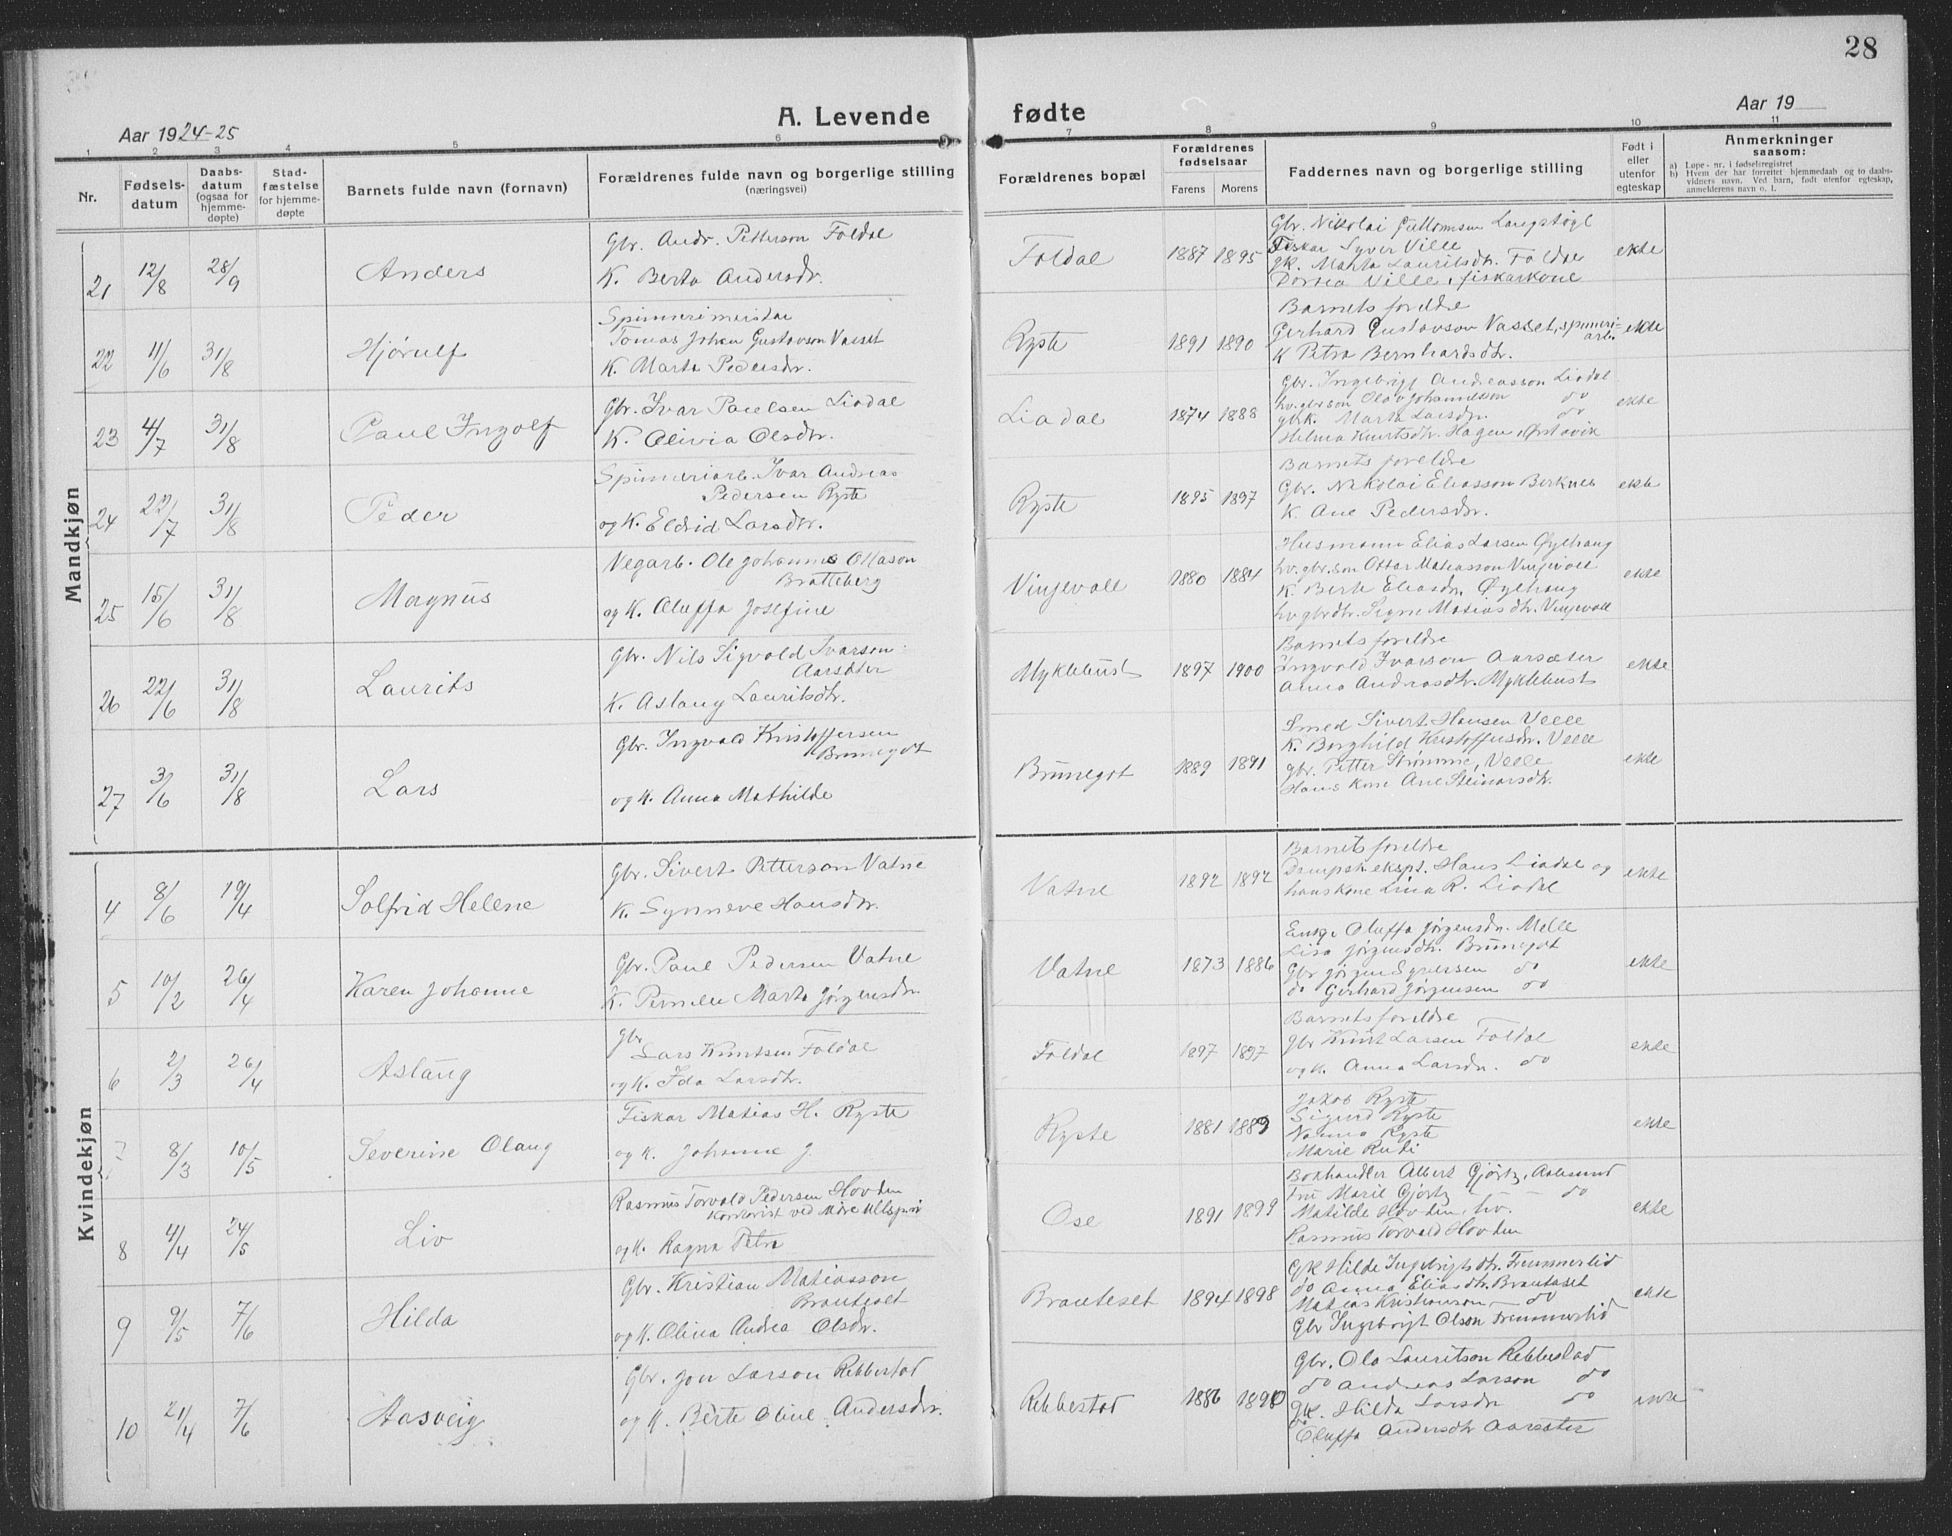 28
Aar 1924-25
A. Levende fødte
Aar 19
1 2 3 4 5 6 7 8 9 10 11
Nr.
Fødsels-
datum
Daabs-
datum
(ogsaa for
hjemme-
døpte)
Stad-
fæstelse
for hjemme-
døpte
Barnets fulde navn (fornavn)
Forældrenes fulde navn og borgerlige stilling
(næringsvei)
Forældrenes bopæl
Forældrenes
fødselsaar
Farens Morens
Faddernes navn og borgerlige stilling
Født i
eller
utenfor
egteskap
Anmerkninger
saasom:
a) Løpe-nr. i fødselsregistret
b) Hvem der har forrettet hjemmedaab og to daabs-
vidners navn. Ved barn, født utenfor egteskap,
anmelderens navn o. l.
Mandkjøn
21 12/8 28/9 Anders
Gbr. Andr. Petterson Foldal
K. Berta Andersdr.
Foldal 1887 1895
Gbr. Nikolai Guttormsen Langstøyl
Fiskar Syver Ville
gk. Marta Lauritsdtr. Foldal
Dortea Ville, fiskarkone
ekte
22 11/6 31/8 Hjørulf
Spinnerimeistar
Tomas Johan Gustavson Vasset
K. Marta Pedersdr.
Ryste 1891 1890
Barnets foreldre
Gerhard Gustavson Vasset, spinneri-
arb.
K Petra Bernhardsdtr.
ekte
23 4/7 31/8 Paul Ingolf
Gbr. Ivar Paulsen Liadal
K. Olivia Olsdtr.
Liadal 1874 1888
Gbr. Ingebrigt Andreasson Liadal
hv. gbr son Olav Johannesson do
gbrk. Marta Larsdtr. do
Helma Knutsdtr. Hagen, Ørstavik
ekte
24 22/7 31/8 Peder
Spinneriarb. Ivar Andreas
Pedersen Ryste
og K. Eldrid Larsdtr.
Ryste 1895 1897
Barnets foreldre
Gbr. Nikolai Eliasson Berknes
K. Ane Pedersdr.
ekte
25 15/6 31/8 Magnus
Vegarb. Ole Johannes Ottason
Bratteberg
og K. Oluffa Josefine
Vinjevoll 1880 1884
Husmann Elias Larsen Øyehaug
hv. gbr. son Ottar Matiasson Vinjevoll
K. Berte Eliasdr. Øyehaug
hv gbrdtr. Signe Matiasdtr. Vinjevoll
ekte
26 22/6 31/8 Laurits
Gbr. Nils Sigvald Ivarson
Aarsæter
K. Aslaug Lauritsdtr.
Myklebust 1897 1900
Barnets foreldre
Ingvald Ivarson Aarsæter
Anna Andrasdtr. Myklebust
ekte
27 3/6 31/8 Lars
Gbr. Ingvald Kristoffersen
Brunegot
og K. Anna Mathilde
Brunegot 1889 1891
Smed Sivert Hansen Velle
K. Borghild Kristoffersdr. Velle
gbr. Petter Strømme, Velle
Hans kone Ane Steinarsdtr.
ekte
Kvindekjøn
4 8/6 19/4 Solfrid Helene
Gbr. Sivert Petterson Vatne
K. Synneve Hansdtr.
Vatne 1892 1892
Barnets foreldre
Dampsk.ekspt. Hans Liadal og
hans kone Lina R. Liadal
ekte
5 10/2 26/4 Karen Johanne
Gbr. Paul Pedersen Vatne
K. Pernille Marta Jørgensdr.
Vatne 1873 1886
Enkje Oluffa Jørgensdr. Melle
Lisa Jørgensdtr. Brunegot
Gbr Jørgen Syversen do
do Gerhard Jørgensen do
ekte
6 2/3 26/4 Aslaug
gbr
Lars Knutsen Foldal
og K. Ida Larsdtr.
Foldal 1897 1897
Barnets foreldre
gbr Knut Larsen Foldal
og K. Anna Larsdr. do
ekte
7 8/3 10/5 Severine Olaug
Fiskar Matias H. Ryste
og K. Johanne J
Ryste 1881 1889
Jakob Ryste
Sigurd Ryste
Nanna Ryste
Marie Ruti
ekte
8 4/4 24/5 Liv
Rasmus Torvald Pedersen Hovden
Kontorist ved Møre Ullspin
og K. Ragna Petra
Ose 1891 1899
Bokhandler Albert Gjørtz, Aalesund
Fru Marie Gjørtz do
Matilde Hovden, hv.
Rasmus Torvald Hovden
ekte
9 9/5 7/6 Hilda
Gbr. Kristian Matiasson
Brauteset
og K. Olina Andrea Olsdr.
Brauteset 1894 1898
GK Hilde Ingebrigtsdtr. Fremmerlid
do Anna Eliasdtr. Brauteset
Matias Kristianson do
Gbr Ingebrigt Olson Fremmerlid
ekte
10 21/4 7/6 Aasveig
Gbr. Jon Larson Rebbestad
og K. Berte Oline Andersdr.
Rebbestad 1886 1890
Gbr. Ola Lauritson Rebbestad
do Andreas Larson do
gk. Hilda Larsdr do
do Oluffa Andersdtr Aarsæter
ekte